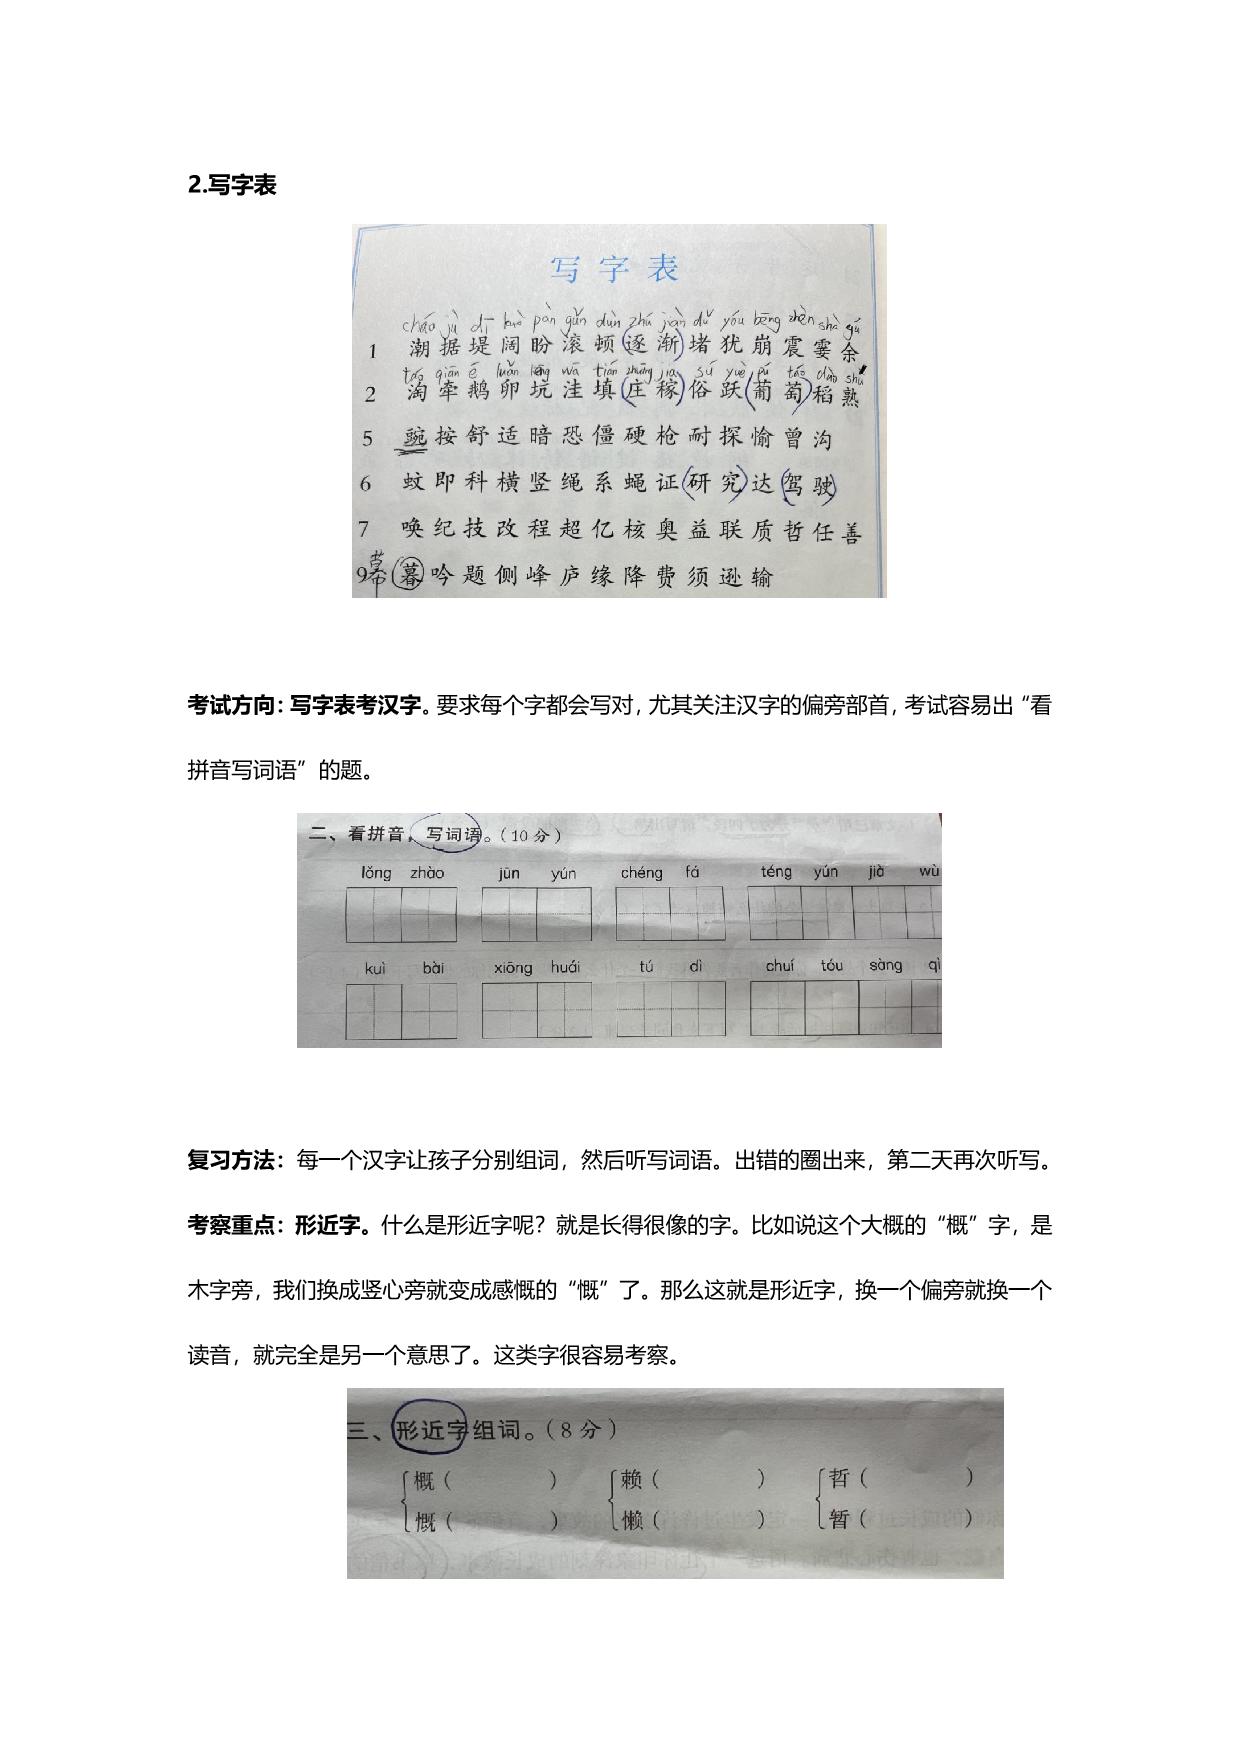 2.写字表
写字表
cháo jù dī kuò pàn gǔn dùn zhú jiàn dǔ yóu bēng zhèn shà
1 潮据堤阔盼滚顿逐渐堵犹崩震霎余
táo qiān é luǎn kēng wā tián zhuāng jia sú yuè pú táo dào shú
2 淘牵鹅卵坑洼填庄稼俗跃葡萄稻熟
5 豌按舒适暗恐僵硬枪耐探愉曾沟
6 蚊即科横竖绳系蝇证研究达驾驶
7 唤纪技改程超亿核奥益联质哲任善
幕
9 暮吟题侧峰庐缘降费须逊输
考试方向：写字表考汉字。要求每个字都会写对，尤其关注汉字的偏旁部首，考试容易出“看
拼音写词语”的题。
二、看拼音，写词语。（10 分）
lǒng zhào jūn yún chéng fá téng yún jià wù
kuì bài xiōng huái tú dì chuí tóu sàng qì
复习方法：每一个汉字让孩子分别组词，然后听写词语。出错的圈出来，第二天再次听写。
考察重点：形近字。什么是形近字呢？就是长得很像的字。比如说这个大概的“概”字，是
木字旁，我们换成竖心旁就变成感慨的“慨”了。那么这就是形近字，换一个偏旁就换一个
读音，就完全是另一个意思了。这类字很容易考察。
三、形近字组词。（8 分）
概（ ） 赖（ ） 哲（ ）
慨（ ） 懒（ ） 暂（ ）